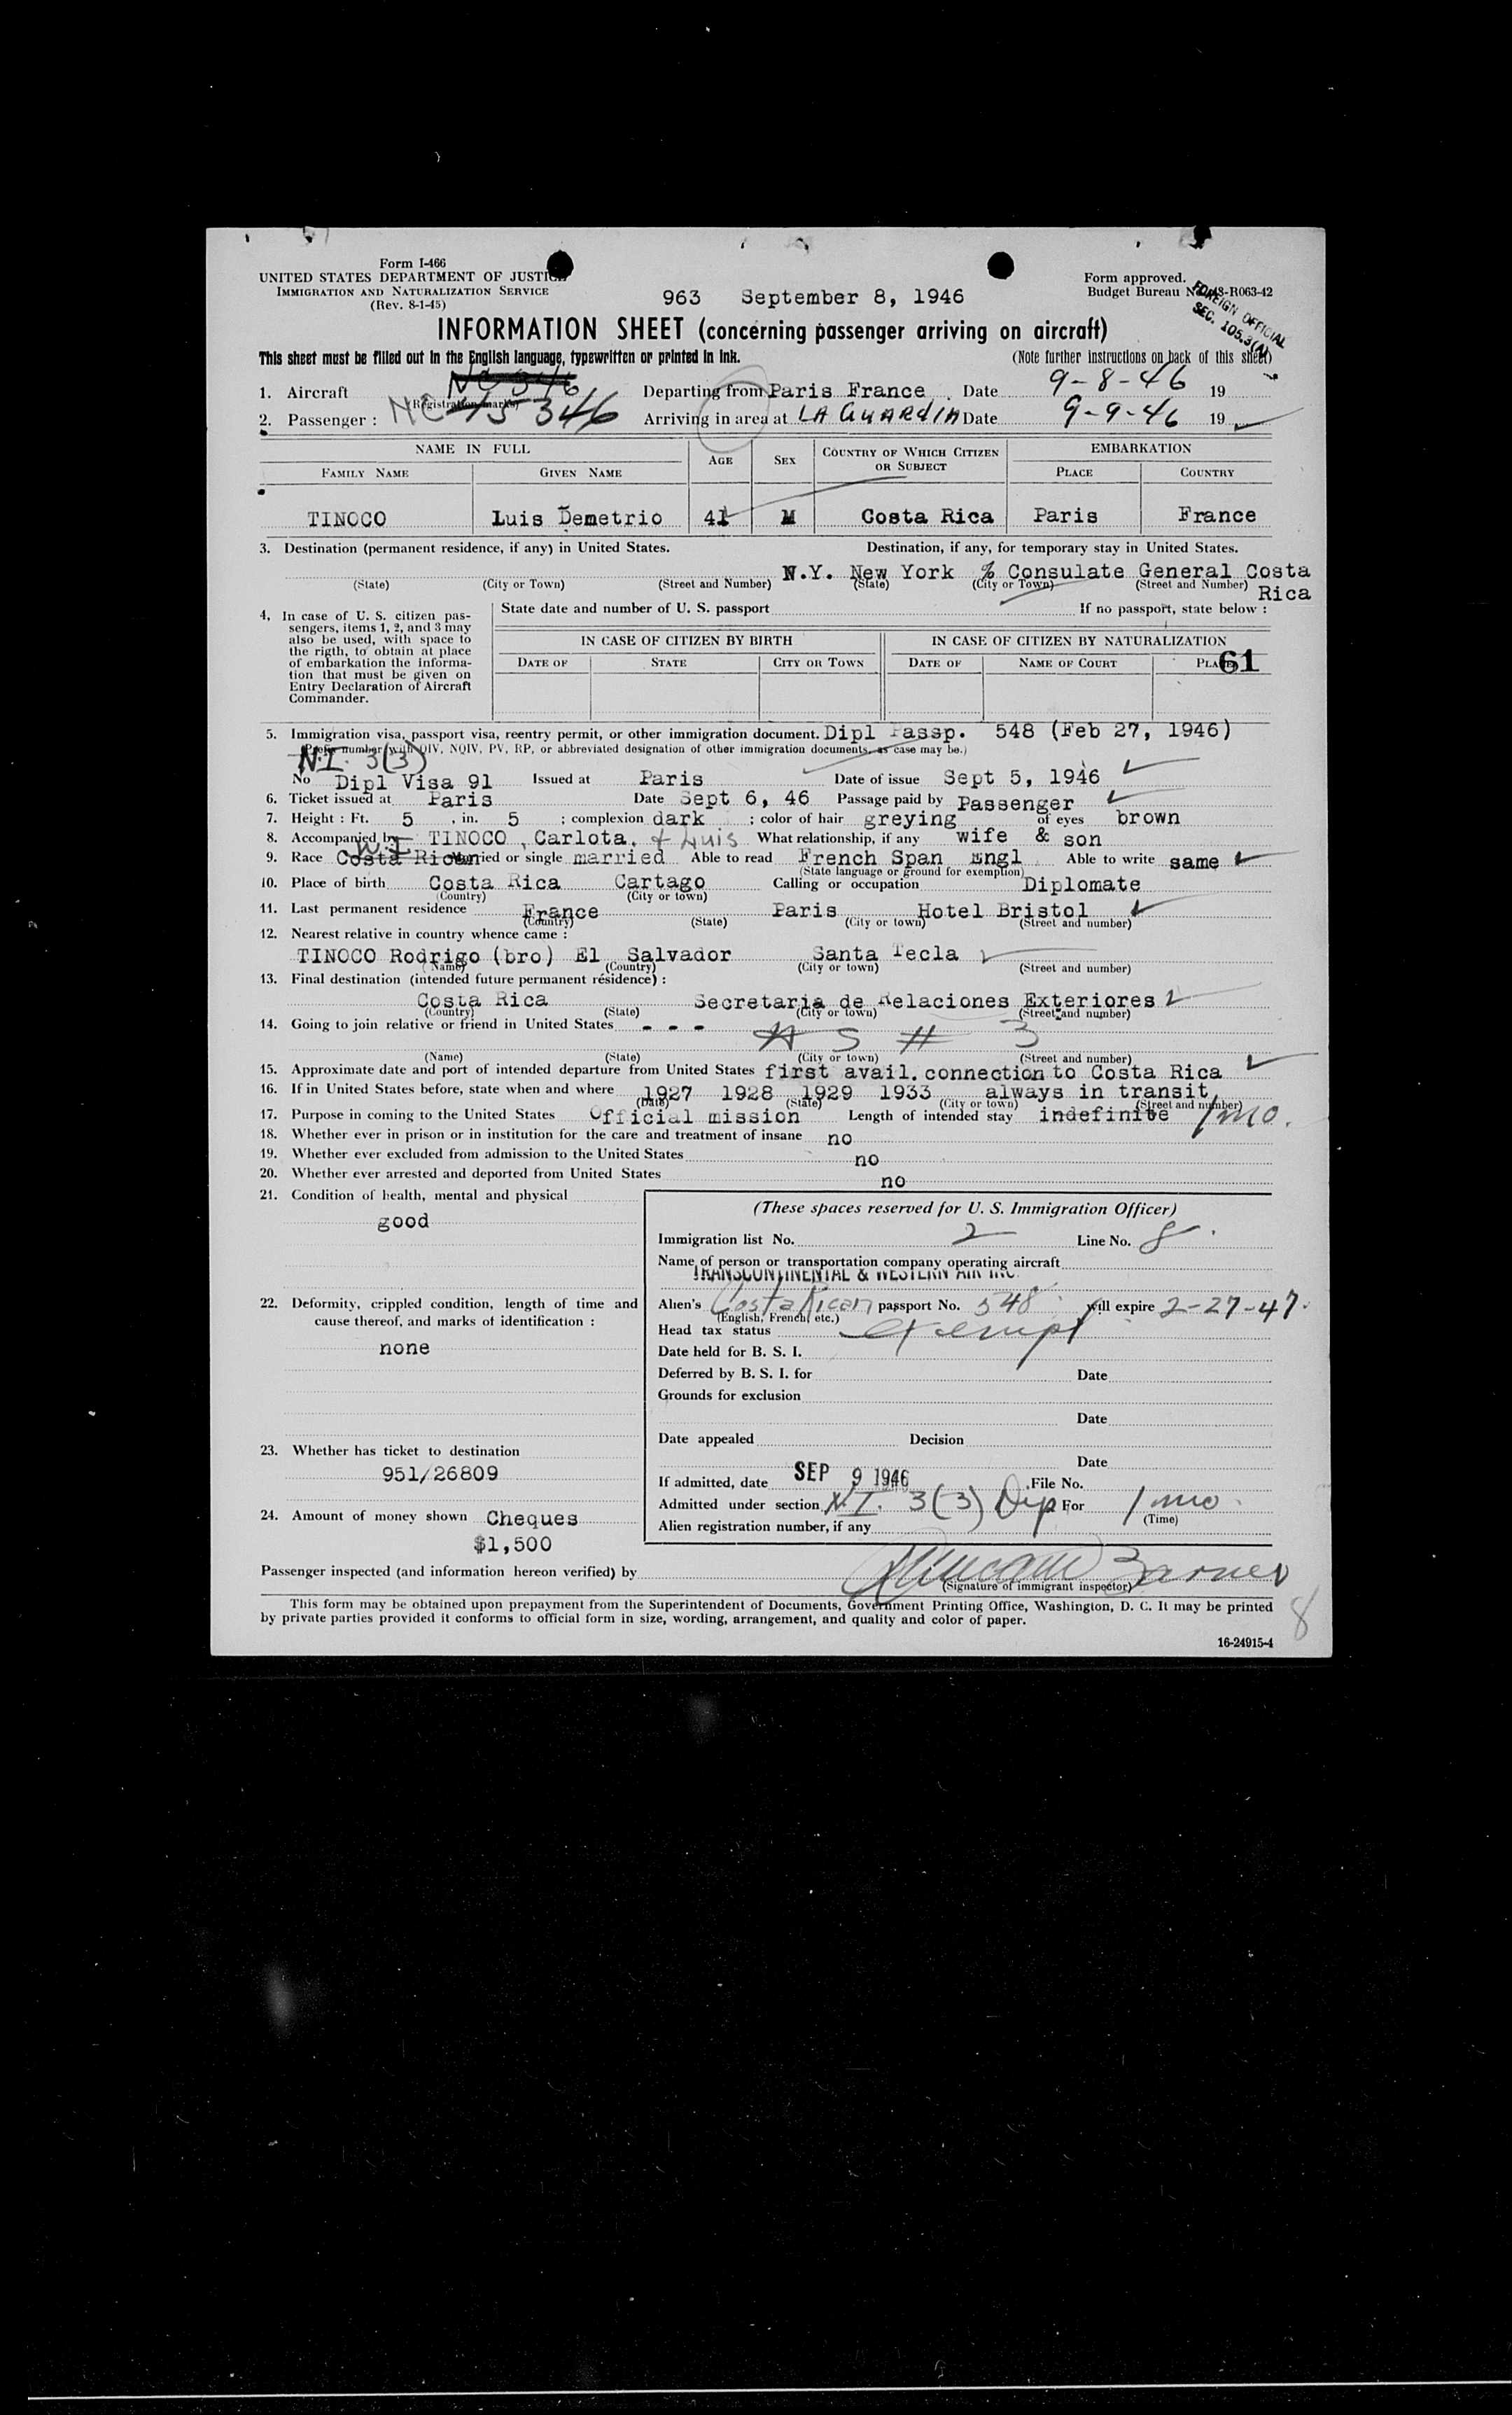 Form I-466
UNITED STATES DEPARTMENT OF JUSTICE
IMMIGRATION AND NATURALIZATION SERVICE
(Rev. 8-1-45)
963 September 8, 1946
Form approved.
Budget Bureau No. 43-R063-42
FOREIGN OFFICIAL
SEC. 105.3(A)
INFORMATION SHEET (concerning passenger arriving on aircraft)
This sheet must be filled out in the English language, typewritten or printed in ink.
(Note further instructions on back of this sheet)
1. Aircraft NC 346 Departing from Paris France Date 9-8-46 19
(Registration marks)
2. Passenger : NC 45346 Arriving in area at LA GUARDIA Date 9-9-46 19
NAME IN FULL AGE SEX COUNTRY OF WHICH CITIZEN OR SUBJECT EMBARKATION
FAMILY NAME GIVEN NAME PLACE COUNTRY
TINOCO Luis Demetrio 41 M Costa Rica Paris France
3. Destination (permanent residence, if any) in United States. Destination, if any, for temporary stay in United States.
N.Y. New York % Consulate General Costa
(State) (City or Town) (Street and Number) (State) (City or Town) (Street and Number) Rica
4. In case of U. S. citizen pas-
sengers, items 1, 2, and 3 may
also be used, with space to
the rigth, to obtain at place
of embarkation the informa-
tion that must be given on
Entry Declaration of Aircraft
Commander.
State date and number of U. S. passport If no passport, state below :
IN CASE OF CITIZEN BY BIRTH IN CASE OF CITIZEN BY NATURALIZATION
DATE OF STATE CITY OR TOWN DATE OF NAME OF COURT PLACE
61
5. Immigration visa, passport visa, reentry permit, or other immigration document. Dipl Passp. 548 (Feb 27, 1946)
(Prefix number with QIV, NQIV, PV, RP, or abbreviated designation of other immigration documents, as case may be.)
N.I. 3(3)
No Dipl Visa 91 Issued at Paris Date of issue Sept 5, 1946
6. Ticket issued at Paris Date Sept 6, 46 Passage paid by Passenger
7. Height : Ft. 5 , in. 5 ; complexion dark ; color of hair greying of eyes brown
8. Accompanied by TINOCO , Carlota, & Luis What relationship, if any wife & son
W.I.
9. Race Costa Rican Married or single married Able to read French Span Engl Able to write same
(State language or ground for exemption)
10. Place of birth Costa Rica Cartago Calling or occupation Diplomate
(Country) (City or town)
11. Last permanent residence France Paris Hotel Bristol
(Country) (State) (City or town) (Street and number)
12. Nearest relative in country whence came :
TINOCO Rodrigo (bro) El Salvador Santa Tecla
(Name) (Country) (City or town) (Street and number)
13. Final destination (intended future permanent résidence) :
Costa Rica Secretaria de Relaciones Exteriores
(Country) (State) (City or town) (Street and number)
14. Going to join relative or friend in United States - - -
# 3
(Name) (State) (City or town) (Street and number)
15. Approximate date and port of intended departure from United States first avail. connection to Costa Rica
16. If in United States before, state when and where 1927 1928 1929 1933 always in transit
(Date) (State) (City or town) (Street and number)
17. Purpose in coming to the United States Official mission Length of intended stay indefinite 1 mo.
18. Whether ever in prison or in institution for the care and treatment of insane no
19. Whether ever excluded from admission to the United States no
20. Whether ever arrested and deported from United States no
21. Condition of health, mental and physical
good
22. Deformity, crippled condition, length of time and
cause thereof, and marks of identification :
none
23. Whether has ticket to destination
951/26809
24. Amount of money shown Cheques
$1,500
(These spaces reserved for U. S. Immigration Officer)
Immigration list No. 2 Line No. 8
Name of person or transportation company operating aircraft
TRANSCONTINENTAL & WESTERN AIR INC.
Alien's Costa Rican passport No. 548 will expire 2-27-47.
(English, French, etc.)
Head tax status exempt
Date held for B. S. I.
Deferred by B. S. I. for Date
Grounds for exclusion
Date
Date appealed Decision
Date
If admitted, date SEP 9 1946 File No.
Admitted under section N.I. 3(3) Dip For 1 mo.
(Time)
Alien registration number, if any
Passenger inspected (and information hereon verified) by Barnes
(Signature of immigrant inspector)
This form may be obtained upon prepayment from the Superintendent of Documents, Government Printing Office, Washington, D. C. It may be printed
by private parties provided it conforms to official form in size, wording, arrangement, and quality and color of paper.
8
16-24915-4